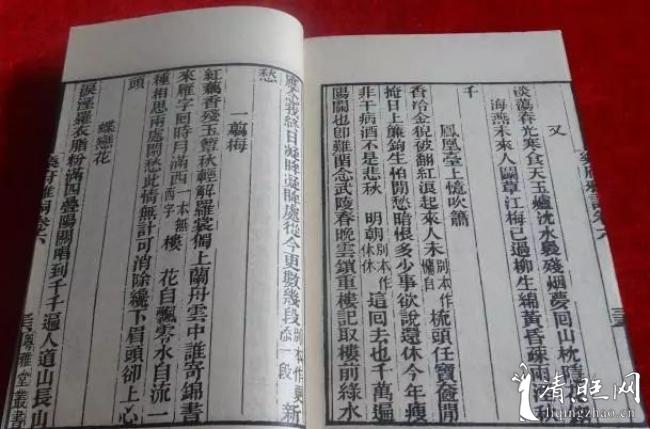 又
淡蕩春光寒食天玉爐沈水裊殘烟夢回山枕隱花鈿
海燕未來人鬭草江梅已過柳生綿黃昏疎雨溼秋
千
鳳凰臺上憶吹簫
香冷金猊被翻紅浪起來人未別本作慵自梳頭任寶奩閒
掩日上簾鉤生怕閒愁暗恨多少事欲說還休今年瘦
非干病酒不是悲秋 明朝別本作休休這回去也千萬遍
陽關也即難留念武陵春晚雲鎖重樓記取樓前綠水
應念我終日凝眸凝眸處從今更數幾段別本作更添一段新
愁
一翦梅
紅藕香殘玉簟秋輕解羅裳獨上蘭舟雲中誰寄錦書
來雁字回時月滿西一本無西字樓 花自飄零水自流一
種相思兩處閒愁此情無計可消除纔下眉頭卻上心
頭
蝶戀花
淚溼羅衣脂粉滿四疊陽關唱到千千遍人道山長山
粵雅堂叢書
清旺网
liqingzhao.cn